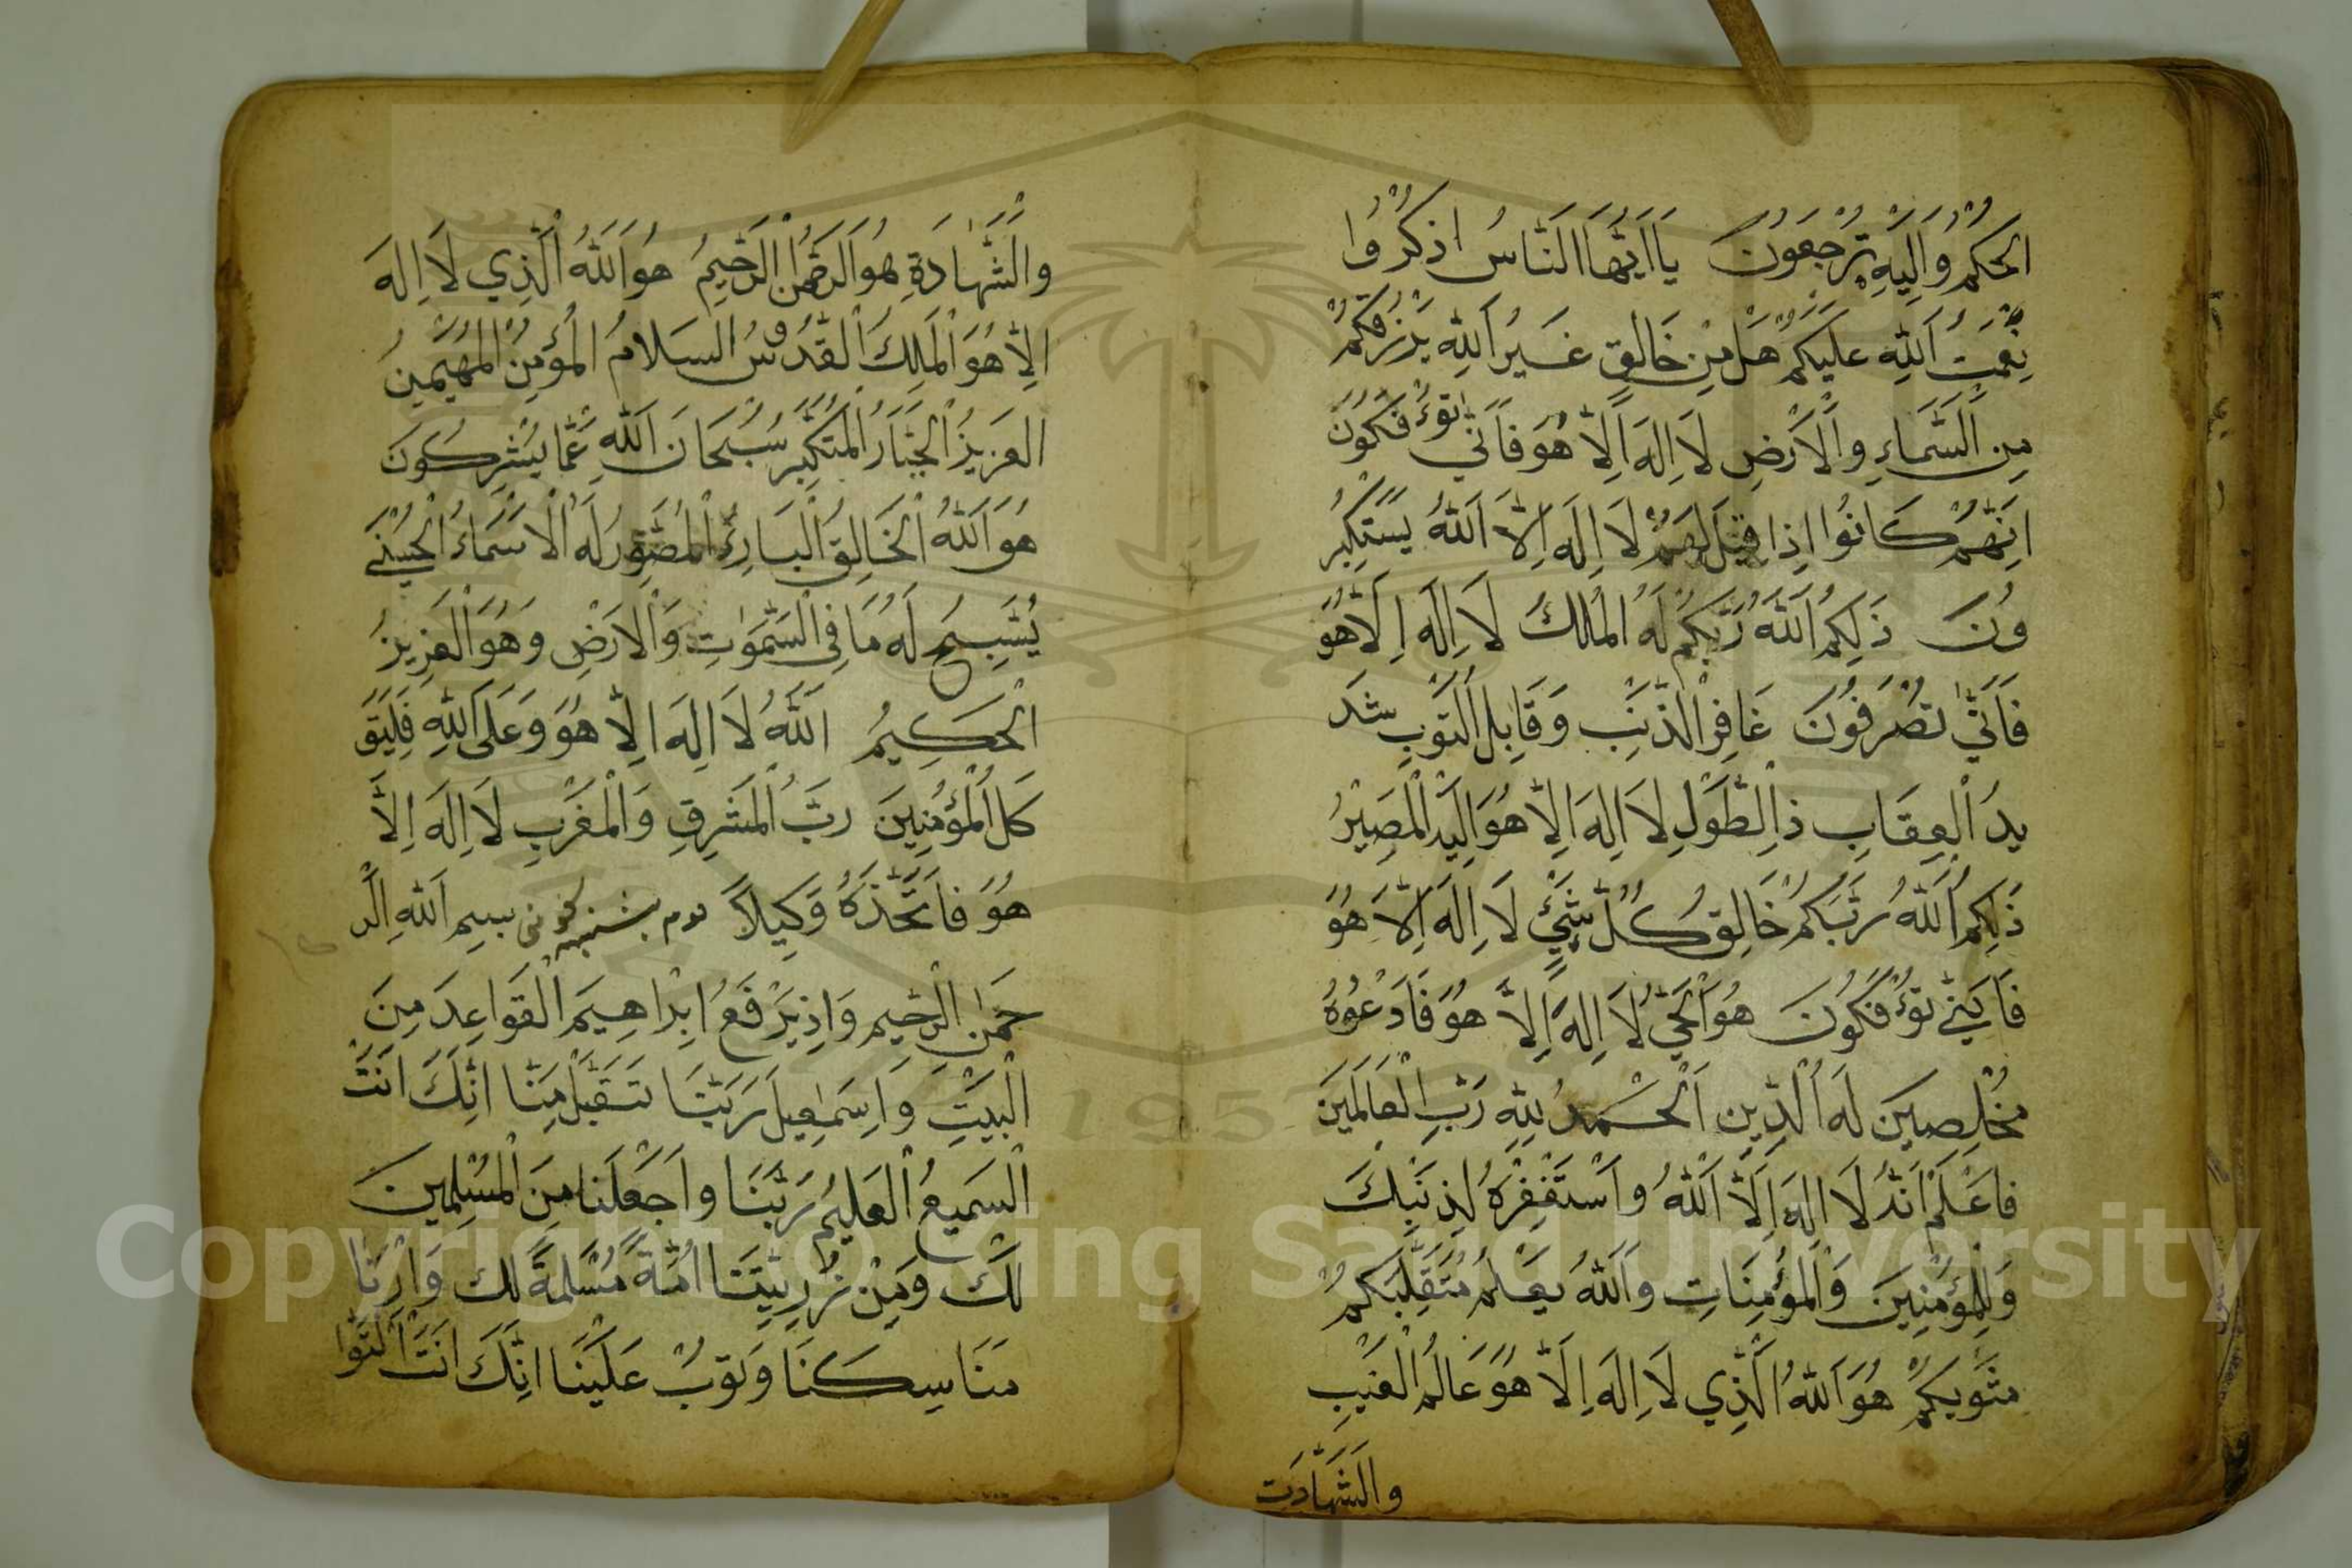 الحكم وَاِلَيْهِ تُرْجَعُونَ يَا اَيُّهَا النَّاسُ اذْكُرُوا
نِعْمَتَ اللهِ عَلَيْكُمْ هَلْ مِنْ خَالِقٍ غَيْرُ اللهِ يَرْزُقُكُمْ
مِنَ السَّمَاءِ وَالْاَرْضِ لَا اِلَهَ اِلَّا هُوَ فَاَنّٰى تُؤْفَكُونَ
اِنَّهُمْ كَانُوا اِذَا قِيلَ لَهُمْ لَا اِلَهَ اِلَّا اللهُ يَسْتَكْبِرُ
وُنَ ذَلِكُمُ اللهُ رَبُّكُمْ لَهُ الْمُلْكُ لَا اِلَهَ اِلَّا هُوَ
فَاَنّٰى تُصْرَفُونَ غَافِرِ الذَّنْبِ وَقَابِلِ التَّوْبِ شَد
يدُ الْعِقَابِ ذِي الطَّوْلِ لَا اِلَهَ اِلَّا هُوَ اِلَيْهِ الْمَصِيْرُ
ذَلِكُمُ اللهُ رَبُّكُمْ خَالِقُ كُلِّ شَيْءٍ لَا اِلَهَ اِلَّا هُوَ
فَاَنّٰى تُؤْفَكُونَ هُوَ الْحَيُّ لَا اِلَهَ اِلَّا هُوَ فَادْعُوهُ
مُخْلِصِينَ لَهُ الْدِّينَ اَلْحَمْدُ لِلّٰهِ رَبِّ الْعَالَمِينَ
فَاعْلَمْ اَنَّهُ لَا اِلَهَ اِلَّا اللهُ وَاسْتَغْفِرْهُ لِذَنْبِكَ
وَلِلْمُؤْمِنِينَ وَالْمُؤْمِنَاتِ وَاللهُ يَعْلَمُ مُتَقَلَّبَكُمْ
مَثْوٰيكُمْ هُوَ اللهُ الَّذِي لَا اِلَهَ اِلَّا هُوَ عَالِمُ الْغَيْبِ
وَالشَّهَادَت
وَالشَّهَادَةِ هُوَ الرَّحْمٰنُ الرَّحِيمُ هُوَ اللهُ الَّذِي لَا اِلَهَ
اِلَّا هُوَ الْمَلِكُ الْقُدُّوسُ السَّلَامُ الْمُؤْمِنُ الْمُهَيْمِنُ
الْعَزِيزُ الْجَبَّارُ الْمُتَكَبِّرُ سُبْحَانَ اللهِ عَمَّا يُشْرِكُونَ
هُوَ اللهُ الْخَالِقُ الْبَارِئُ الْمُصَوِّرُ لَهُ الْاَسْمَاءُ الْحُسْنٰى
يُسَبِّحُ لَهُ مَا فِي السَّمٰوَاتِ وَالْاَرْضِ وَهُوَ الْعَزِيزُ
الْحَكِيمُ اللهُ لَا اِلَهَ اِلَّا هُوَ وَعَلَى اللهِ فَلْيَتَوَ
كَّلِ الْمُؤْمِنِينَ رَبُّ الْمَشْرِقِ وَالْمَغْرِبِ لَا اِلَهَ اِلَّا
هُوَ فَاتَّخِذْهُ وَكِيلاً دوم بشنبه كونى بسيم اللهِ الر
حْمٰنِ الرَّحِيمِ وَاِذْ يَرْفَعُ اِبْرَاهِيمَ الْقَوَاعِدَ مِنَ
الْبَيْتِ وَاِسْمٰعِيلَ رَبَّنَا تَقَبَّلْ مِنَّا اِنَّكَ اَنْتَ
الْسَمِيعُ الْعَلِيمُ رَبَّنَا وَاجْعَلْنَا مِنَ الْمُسْلِمِينَ
لَكَ وَمِنْ ذُرِّيَّتِنَا اُمَّةً مُسْلِمَةً لَكَ وَاَرِنَا
مَنَاسِكَنَا وَتُوبْ عَلَيْنَا اِنَّكَ اَنْتَ الْتَوَّا
Copyright © King Saud University
1957